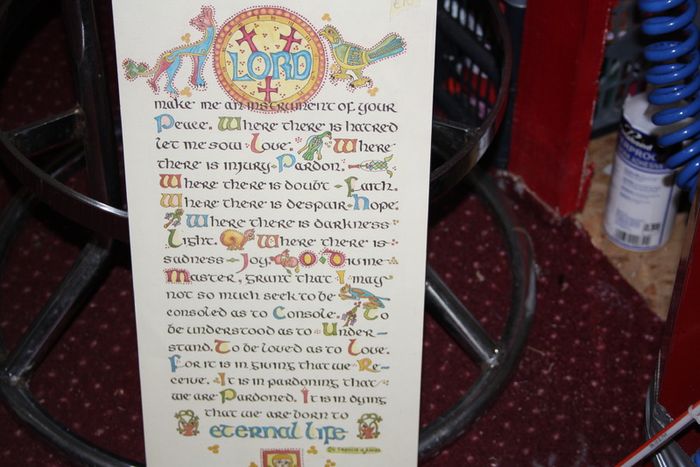 LORD
make me an instrument of your
Peace. Where there is hatred
let me sow Love. Where
there is injury Pardon.
Where there is doubt Faith.
Where there is despair Hope.
Where there is darkness
Light. Where there is
sadness Joy. O Divine
Master, grant that I may
not so much seek to be
consoled as to Console. To
be understood as to Under-
stand. To be loved as to Love.
For it is in giving that we Re-
ceive. It is in pardoning that
we are Pardoned. It is in dying
that we are born to
eternal life